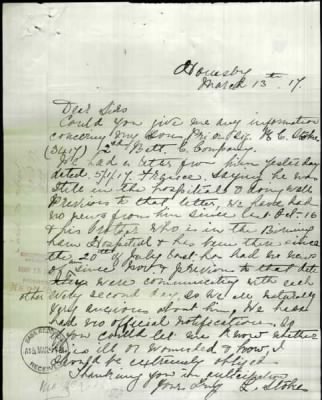 Hornsby
March 13th. 17.
Dear Sirs
Could you give me any information
concerning my son, Stoke
(3417) / 2nd Batt. E. Company.
We had a letter from him yesterday
dated 5/1/17 France. Saying he was
still in the hospital & doing well.
Previous to that letter, we have had
no news from him since last Oct-16
& his brother who is in the Birming
ham Hospital & has been there since
the 20th of July last has had no news
of since Nov & previous to that date
they were communicating with each
other every second day, so we are naturally
very anxious about him, we have
had no official notification. So
if you could let me know whether
he is ill or wounded & how, I
should be extremely obliged.
Thanking you in anticipation
Yours truly L. Stoke
RECEIVED